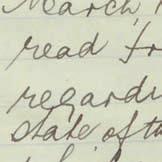 March,
read fr
regardi
state of th